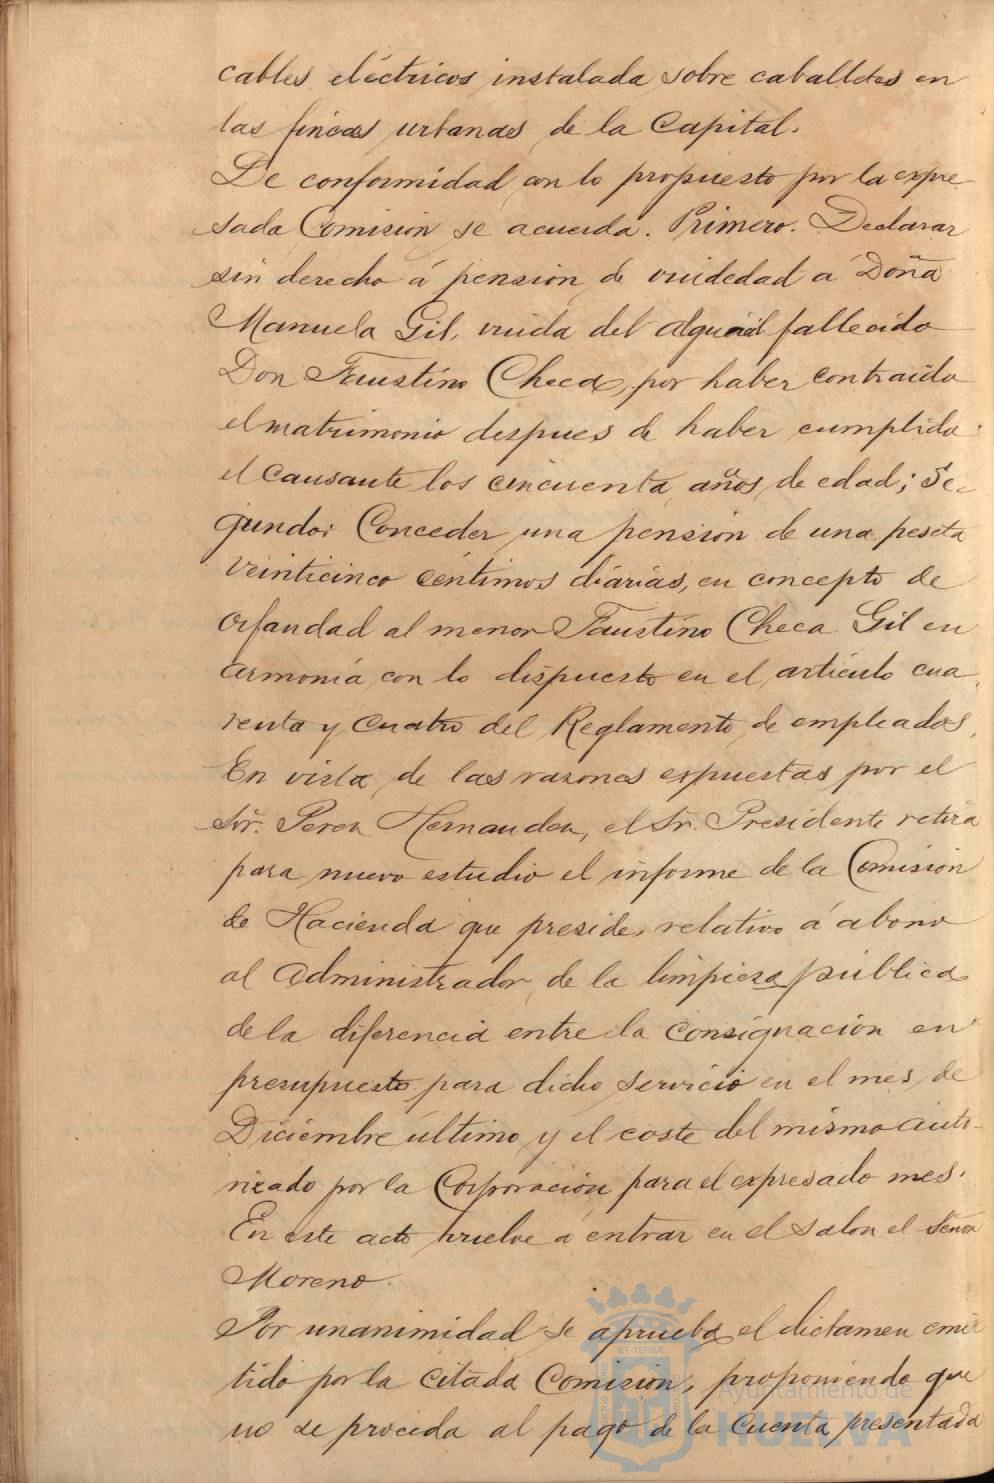 cables eléctricos instalada sobre caballetes en
las fincas urbanas de la Capital.
De conformidad con lo propuesto por la expre
sada Comisión se acuerda. Primero. Declarar
sin derecho á pensión de viudedad a Doña
Manuela Gil, viuda del alguacil fallecido
Don Faustino Checa, por haber contraido
el matrimonio despues de haber cumplido
el causante los cincuenta años de edad; Se-
gundo: Conceder una pensión de una peseta
veinticinco céntimos diarias, en concepto de
orfandad al menor Faustino Checa Gil en
armonía con lo dispuesto en el artículo cua
renta y cuatro del Reglamento de empleados.
En vista de las razones expuestas por el
Sr. Perez Hernandez, el Sr. Presidente retira
para nuevo estudio el informe de la Comisión
de Hacienda que preside, relativo á abono
al Administrador de la limpieza pública
de la diferencia entre la consignación en
presupuesto para dicho servicio en el mes de
Diciembre último y el coste del mismo auto-
rizado por la Corporación para el expresado mes.
En este acto vuelve á entrar en el salon el Señor
Moreno.
Por unanimidad se aprueba el dictamen emi
tido por la citada Comisión, proponiendo que
no se proceda al pago de la cuenta presentada
ET TERRÆ
Ayuntamiento de
HUELVA